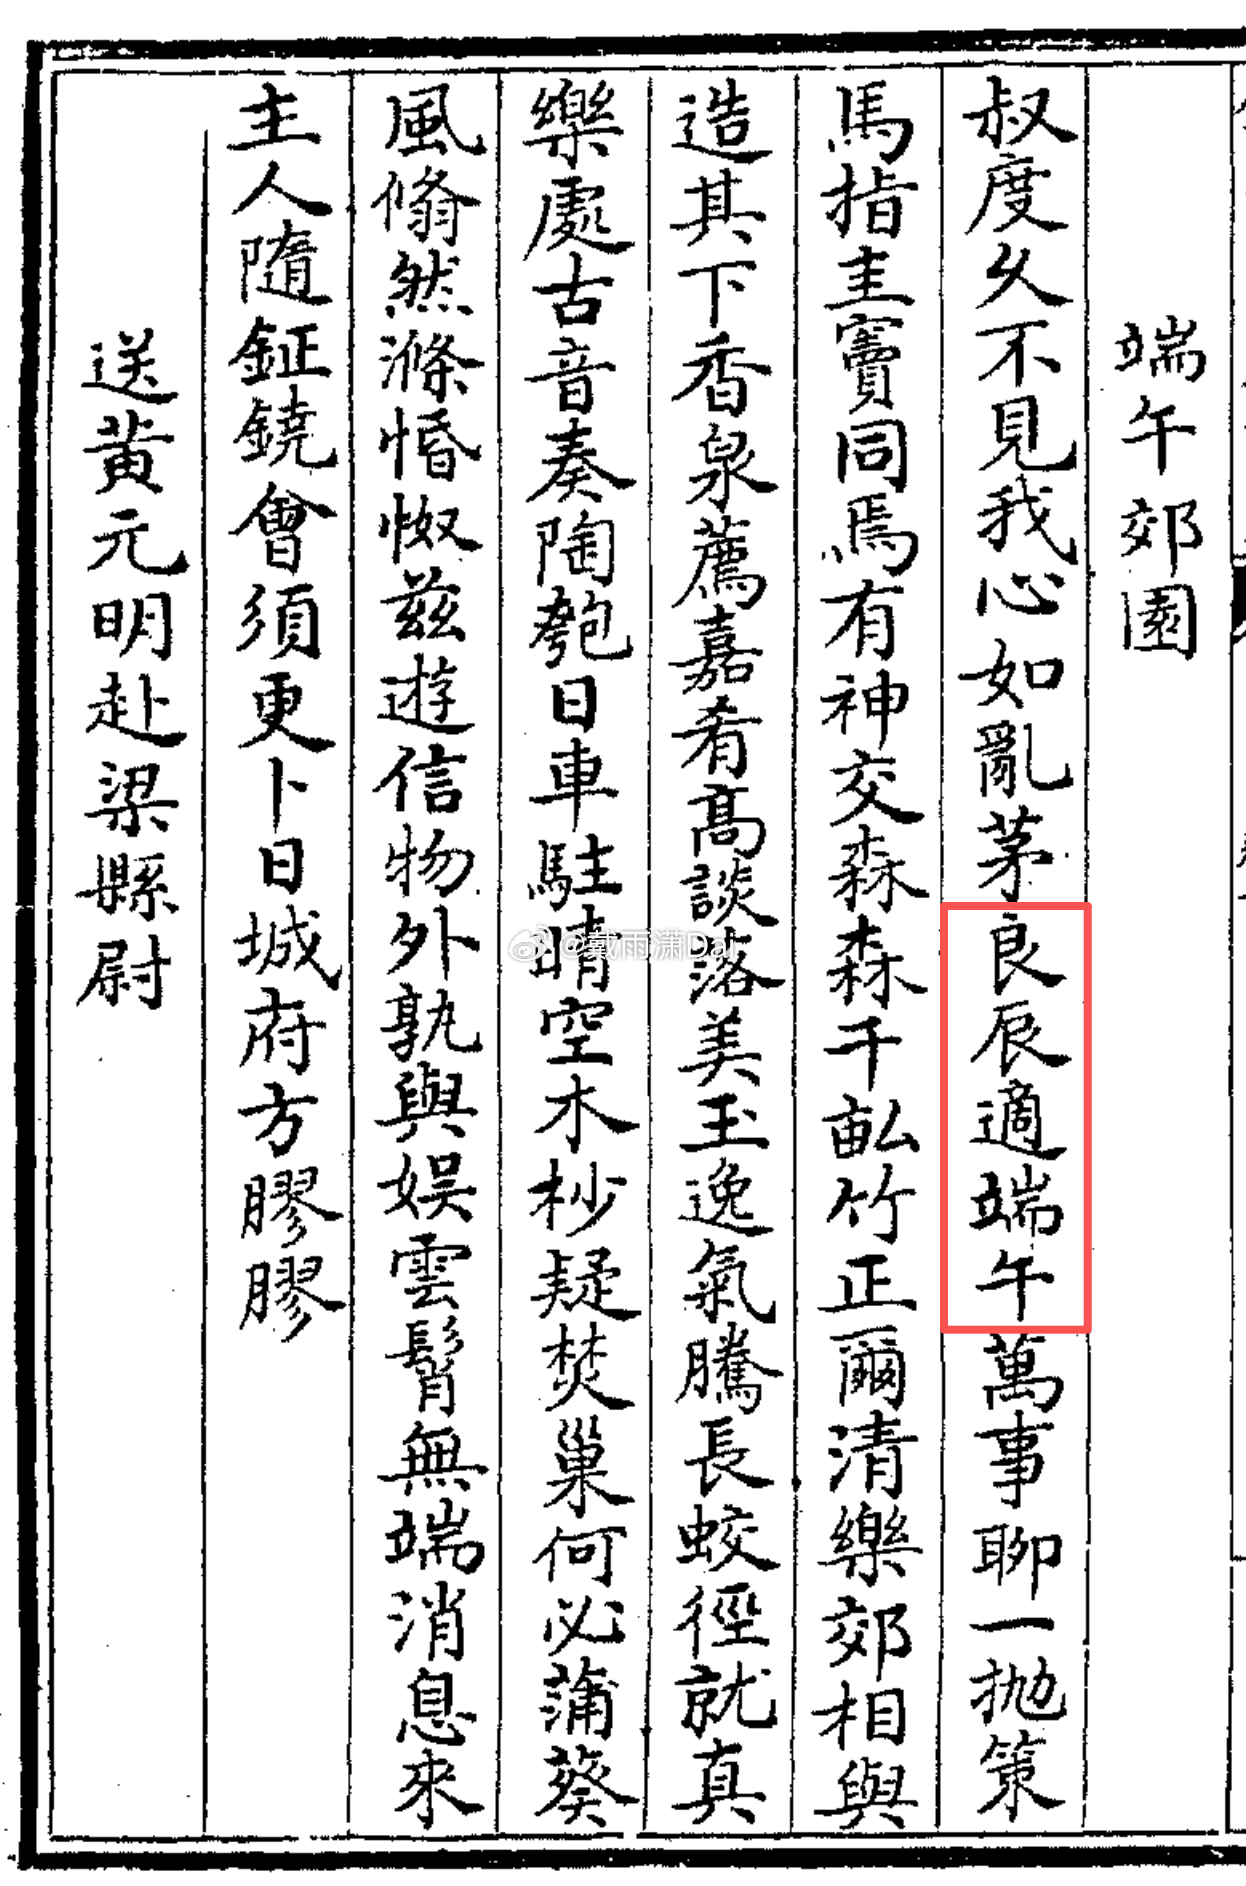 端午郊園
叔度久不見我心如亂茅良辰適端午萬事聊一抛策
馬指圭竇同焉有神交森森千畝竹正爾清樂郊相與
造其下香泉薦嘉肴高談落美玉逸氣騰長蛟徑就真
樂處古音奏陶匏日車駐晴空木杪疑焚巢何必蒲葵
風翛然滌惛怓茲遊信物外孰與娱雲髾無端消息來
主人隨鉦鐃會須更卜日城府方膠膠
送黄元明赴梁縣尉
@戴雨潇Dai